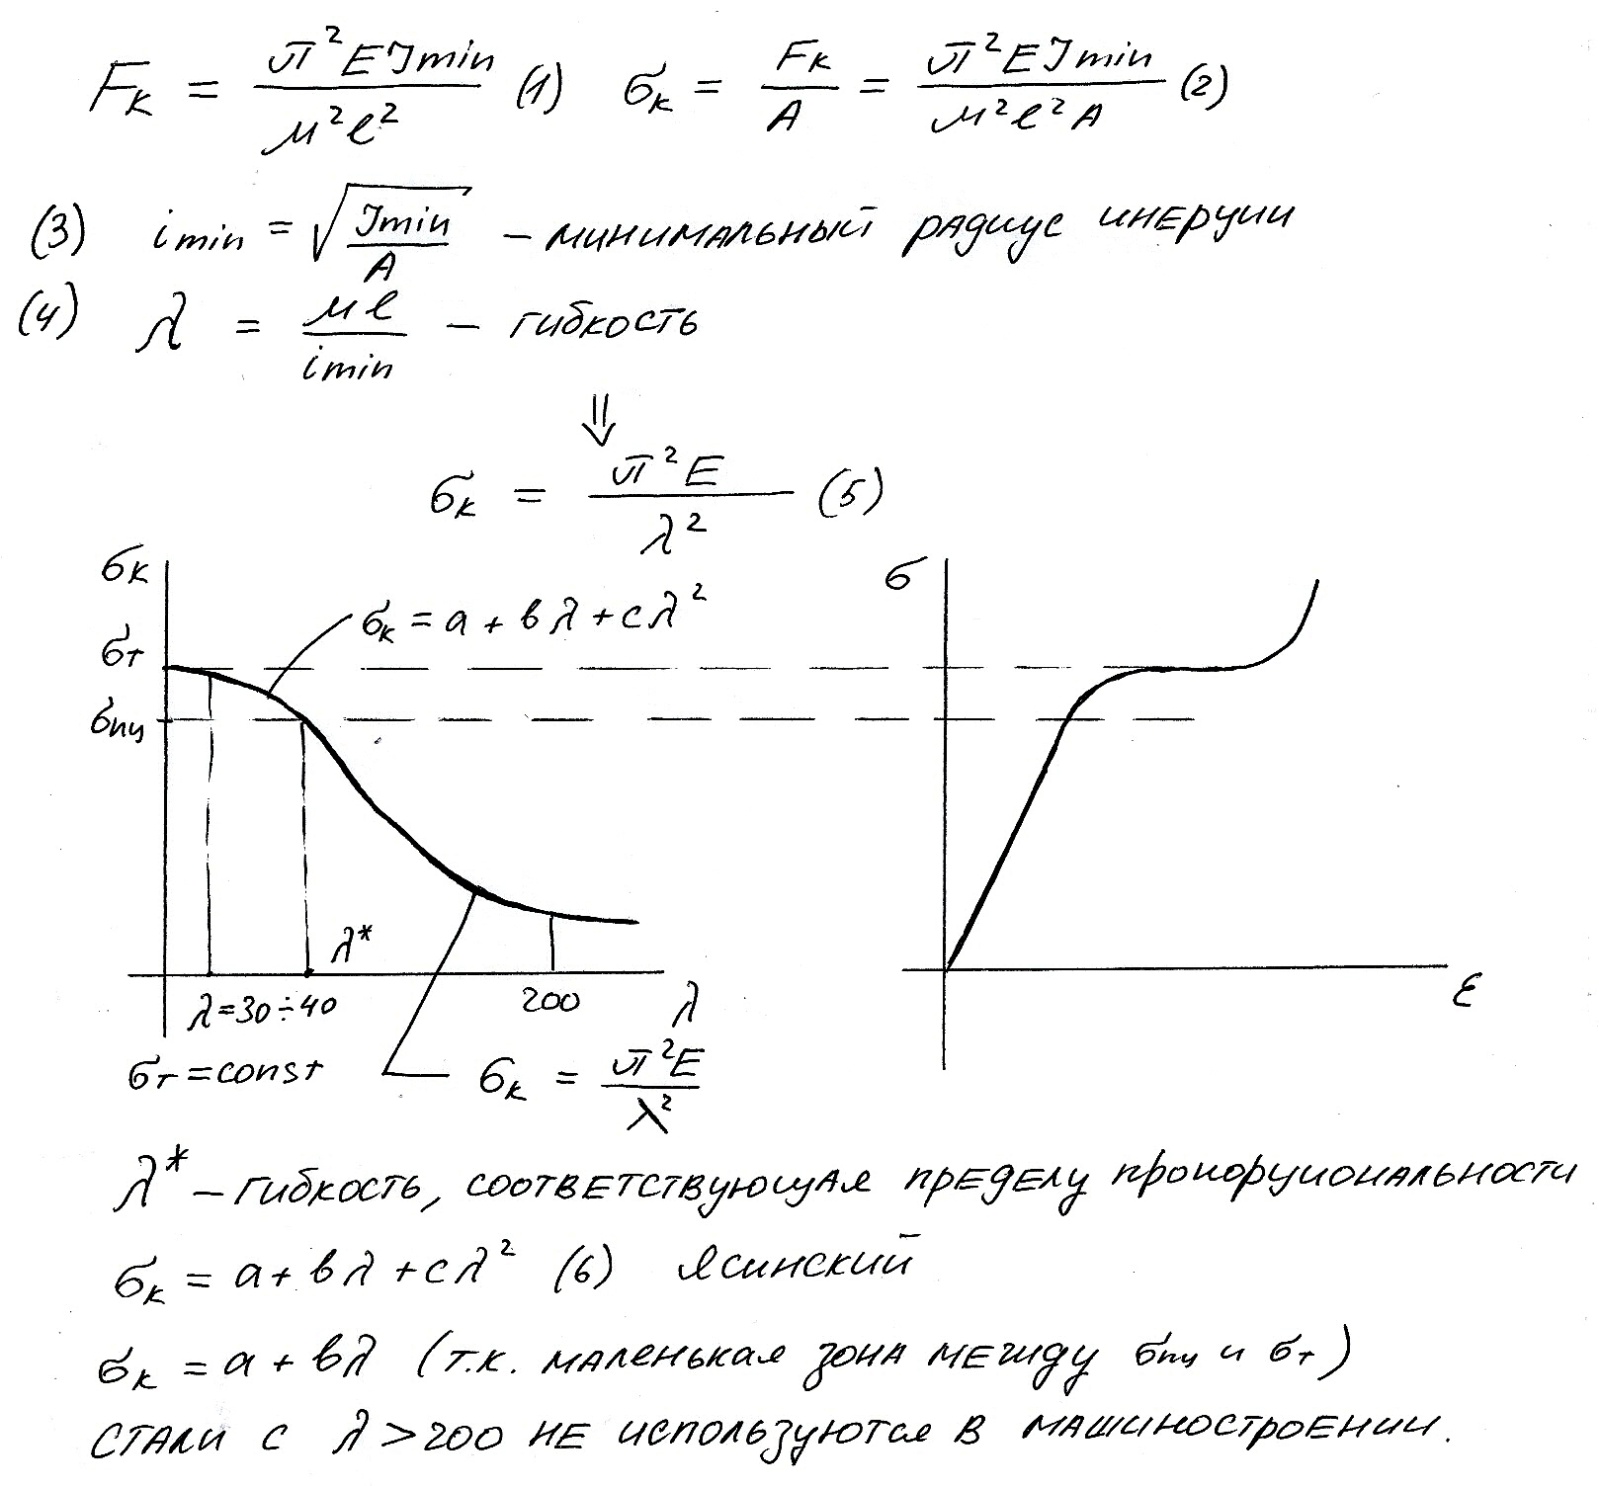 Fк = π²EJmin / μ²ℓ² (1) σк = Fк / A = π²EJmin / μ²ℓ²A (2)
(3) imin = √(Jmin / A) – минимальный радиус инерции
(4) λ = μℓ / imin – гибкость
⇓
σк = π²E / λ² (5)
σк
σк = a + вλ + cλ²
σт
σпц
λ*
λ=30÷40
200
λ
σт = const
σк = π²E / λ²
σ
ε
λ* – гибкость, соответствующая пределу пропорциональности
σк = a + вλ + cλ² (6) Ясинский
σк = a + вλ (т.к. маленькая зона между σпц и σт)
стали с λ > 200 не используются в машиностроении.